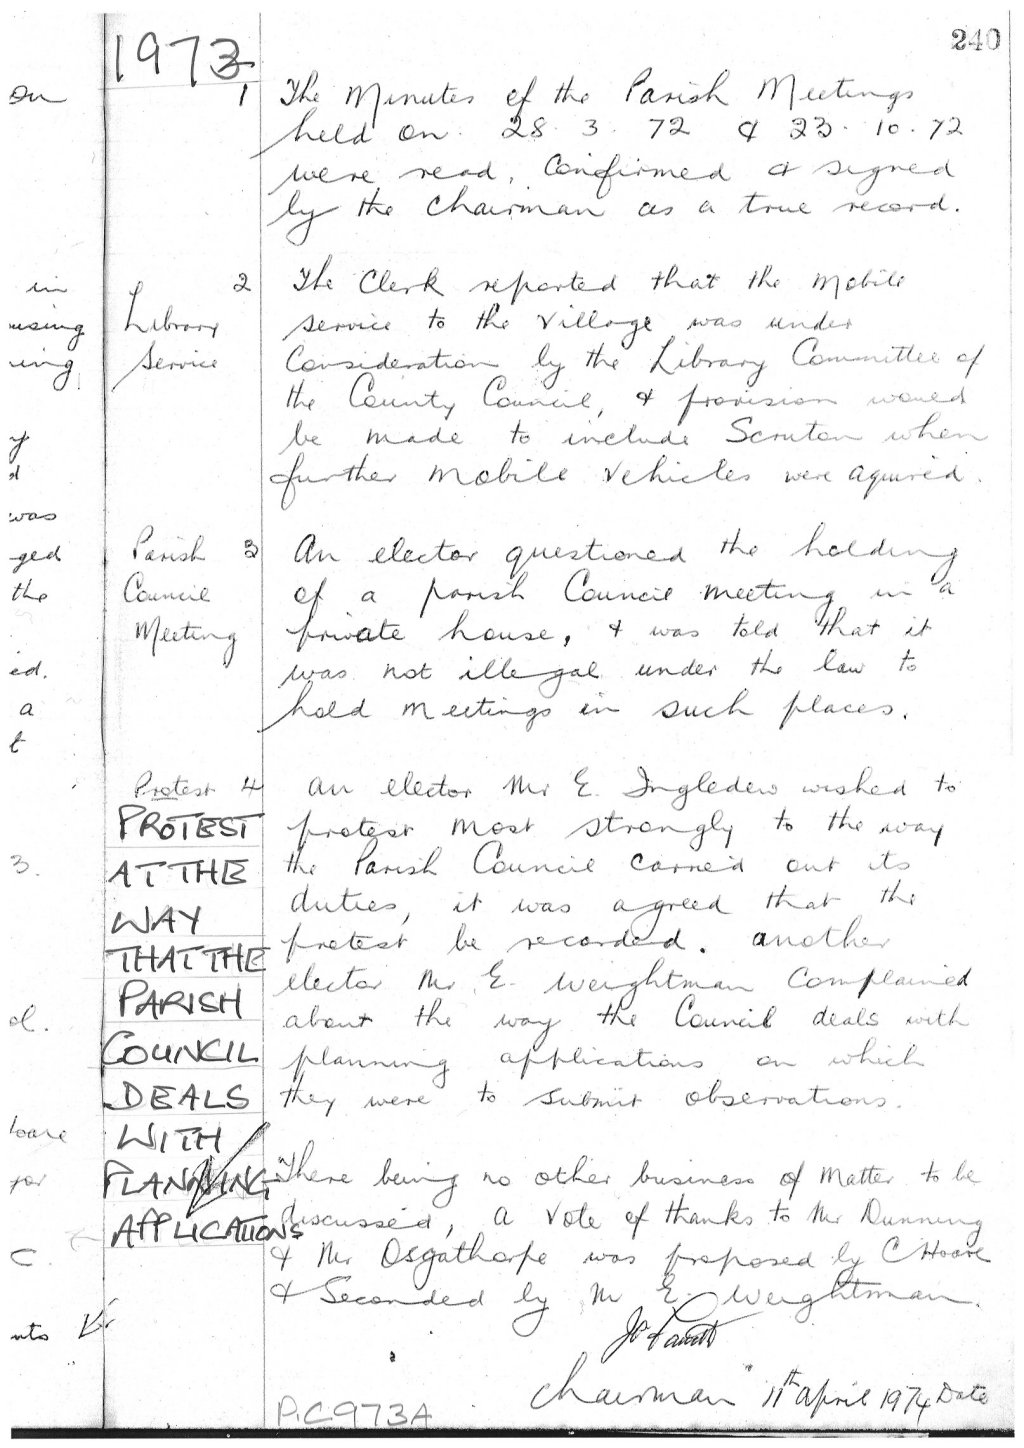 240
1973
1 The Minutes of the Parish Meetings
held on 28.3.72 & 23.10.72
were read, Confirmed & signed
by the Chairman as a true record.
Library Service
2 The Clerk reported that the Mobile
service to the Village was under
Consideration by the Library Committee of
the County Council, & provision would
be made to include Scruton when
further Mobile Vehicles were aquired.
Parish Council Meeting
3 An elector questioned the holding
of a parish Council meeting in a
private house, & was told that it
was not illegal under the law to
hold meetings in such places.
Protest 4
PROTEST
AT THE
WAY
THAT THE
PARISH
COUNCIL
DEALS
WITH
PLANNING
APPLICATIONS
An elector Mr E. Ingledew wished to
protest most strongly to the way
the Parish Council carried out its
duties, it was agreed that the
protest be recorded. another
elector Mr E. Weightman Complained
about the way the Council deals with
planning applications on which
they were to submit observations.
There being no other business of Matter to be
discussed, a Vote of thanks to Mr Dunning
& Mr Osgathorpe was proposed by C Hoare
& Seconded by Mr E. Weightman.
Chairman 11th April 1974 Date
P.C973A
on
in
using
ing
y
d
was
ged
the
ed.
a
t
3.
d.
loare
for
C.
nts